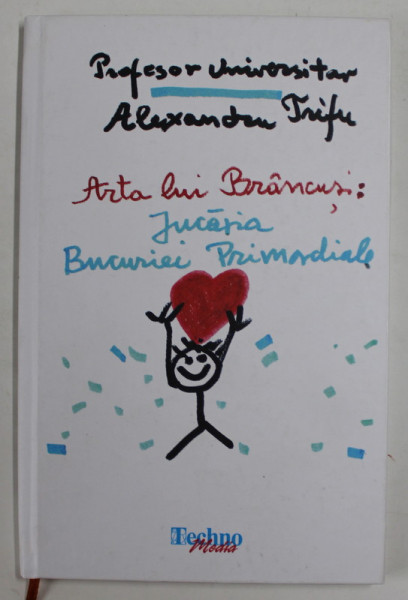 Profesor Universitar
Alexandru Trifu
Arta lui Brâncuși:
Jucăria
Bucuriei Primordiale
Techno
Media